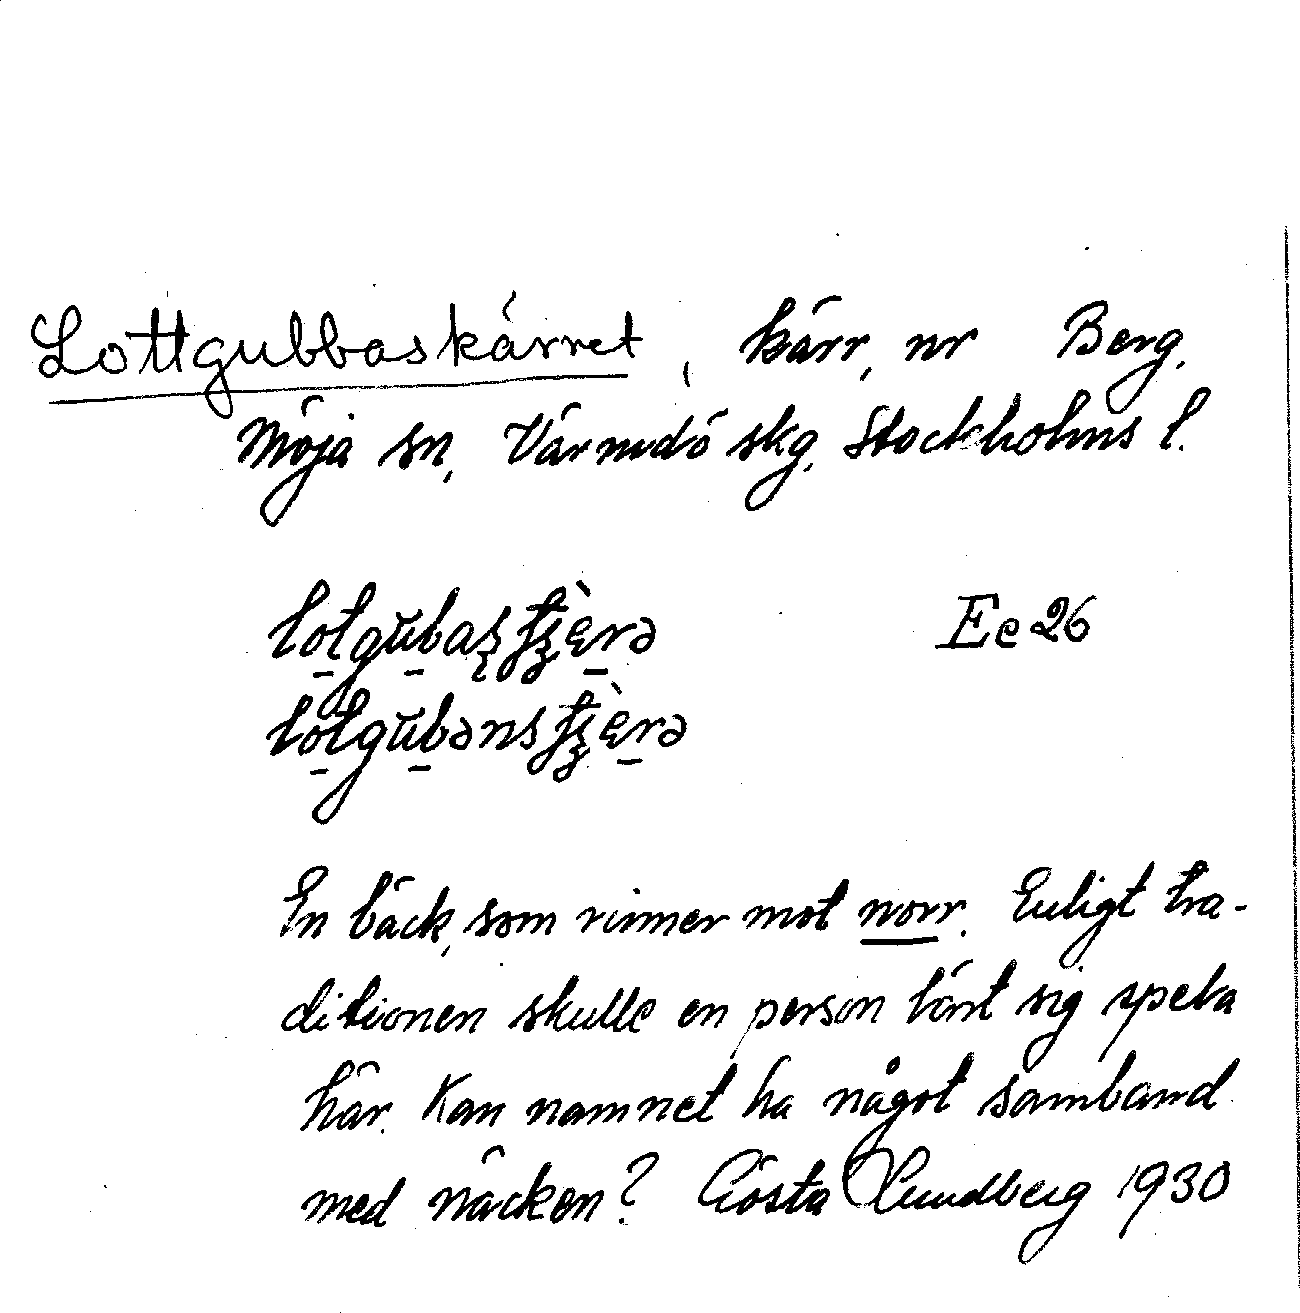 Lottgubbaskärret, kärr, nr Berg,
Möja sn, Värmdö skg, Stockholms l.
En bäck, som rinner mot norr. Enligt tra-
ditionen skulle en person lärt sig spela
här. Kan namnet ha något samband
med näcken? Gösta Lundberg 1930